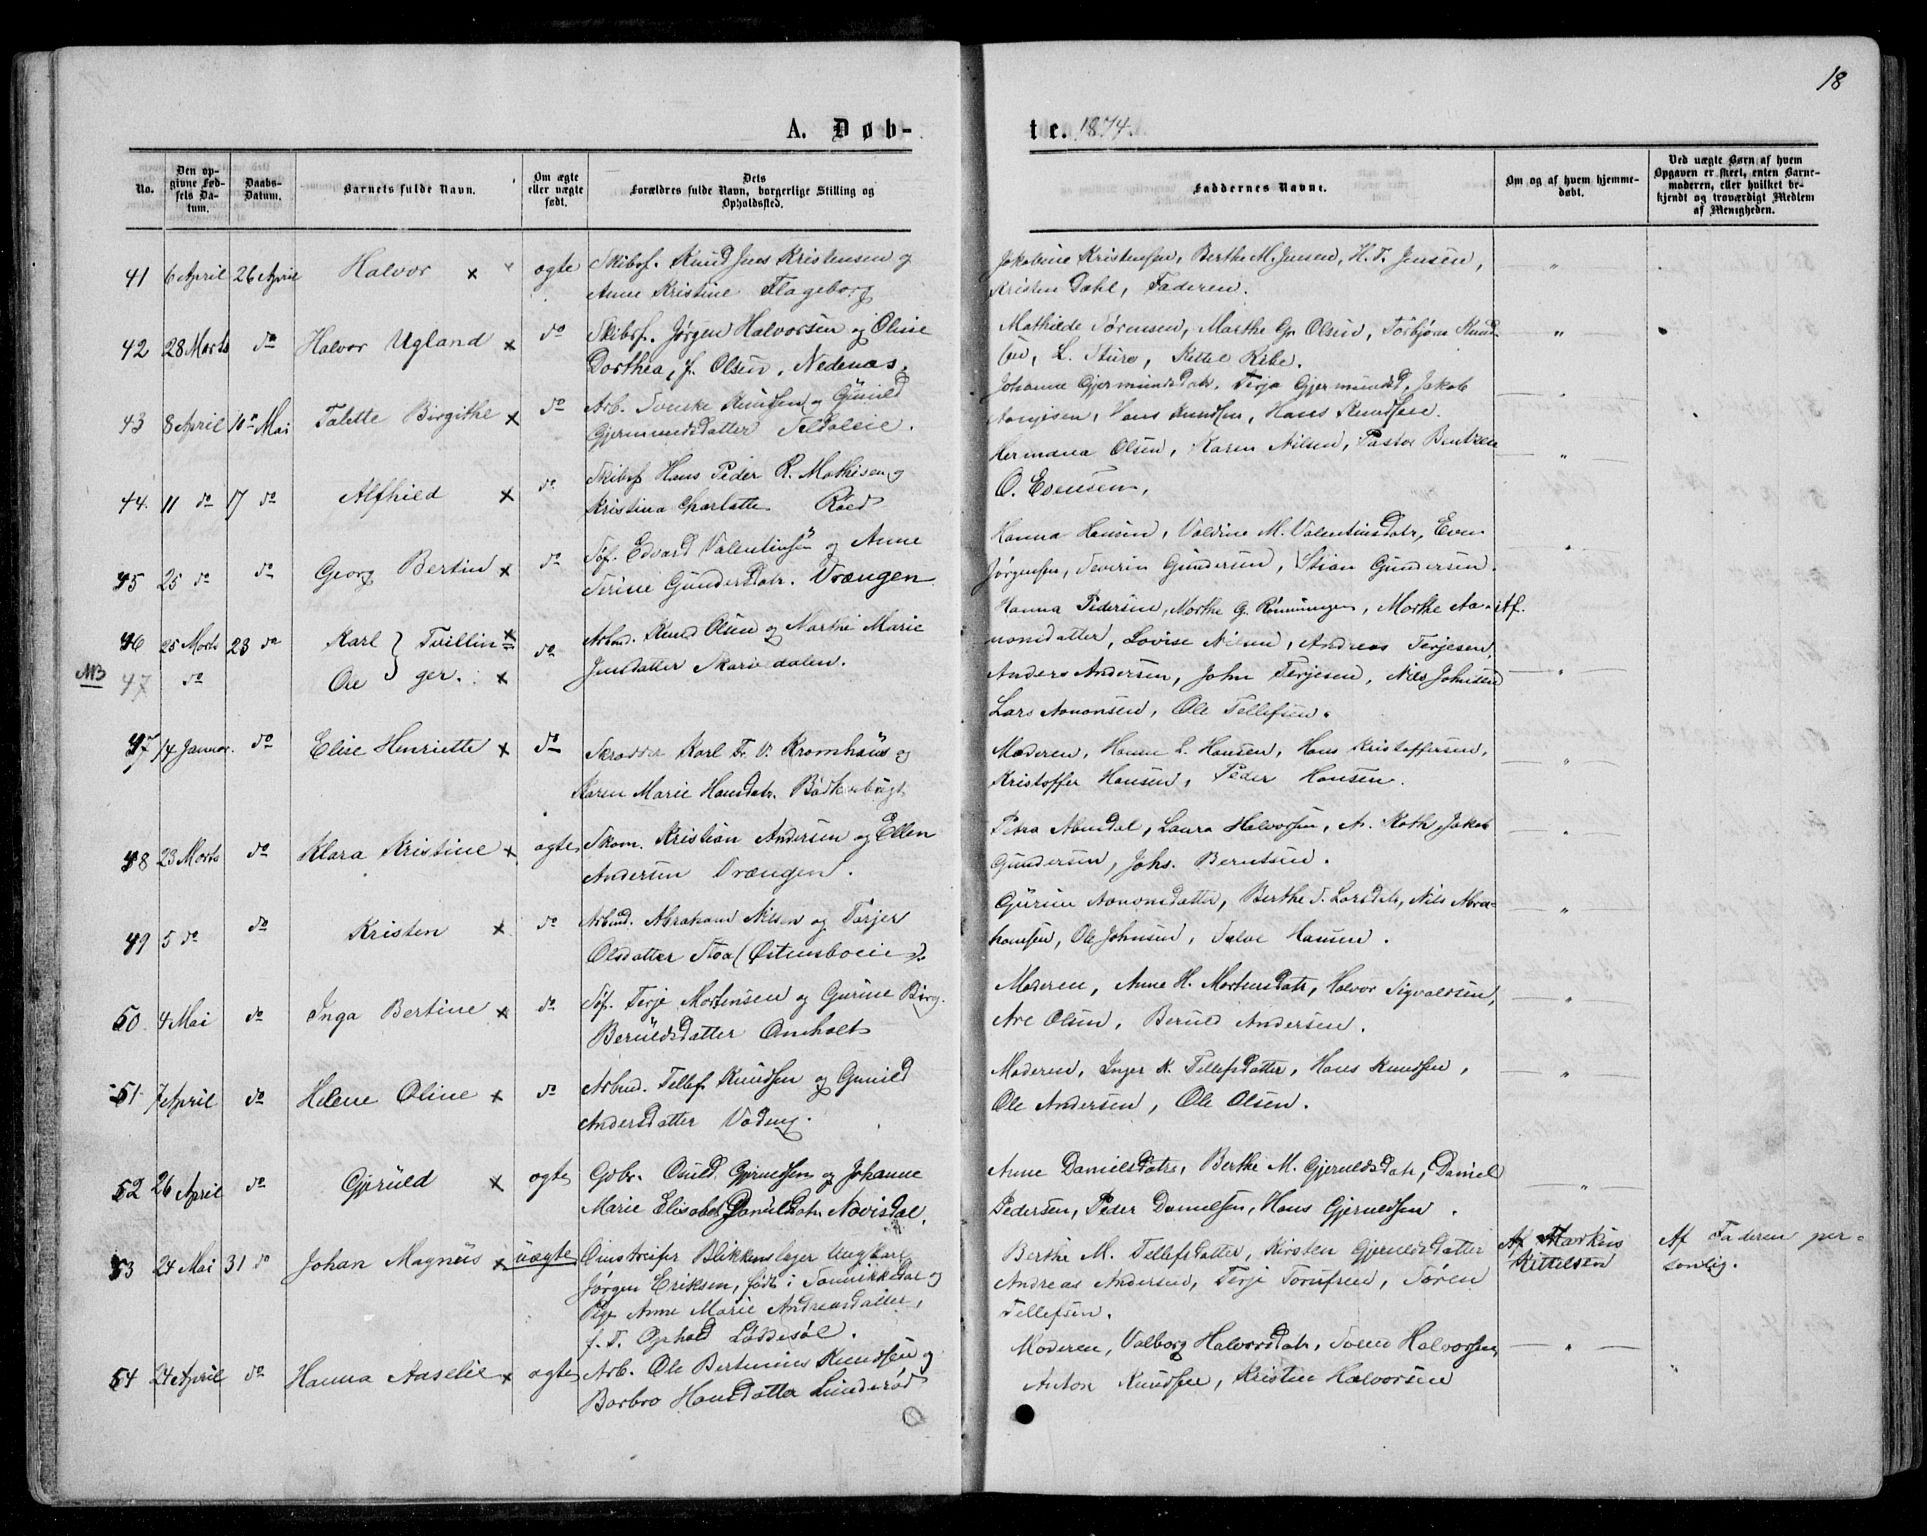 18
A. Døb-
te. 1874.
No.
Den op-
givne Fød-
sels Da-
tum.
Daabs-
Datum.
Barnets fulde Navn.
Om ægte
eller uægte
født.
Dets
Forældres fulde Navn, borgerlige Stilling og
Opholdssted.
Faddernes Navne.
Om og af hvem hjemme-
døbt.
Ved uægte Børn af hvem
Opgaven er skeet, enten Barne-
moderen, eller hvilket be-
kjendt og troværdigt Medlem
af Menigheden.
41 6 April 26 April Halvor x ægte Skibsf. Knud Jens Kristensen og
Anne Kristine Flageborg
Jakobine Kristensen, Berthe M. Jensen, H. T. Jensen,
Kristen Dahl, Faderen.
42 28 Marts do Halvor Ugland x do Skibsf. Jørgen Halvorsen og Oline
Dorthea, f. Olsen, Nedenæs.
Mathilde Sørensen, Marthe Gr. Olsen, Torbjørn Knud-
sen, L. Sture, Kittel Ribe.
43 8 April 10de Mai Talette Birgithe x do Arb. Svenke Knudsen og Gunild
Gjermundsdatter
Johanne Gjermundsdatr, Terje Gjermunds, Jakob
Aanonsen, Hans Knudsen, Hans Knudsen.
44. 11 do 17 do Alfhild x do Skibsf Hans Peder R. Mathisen og
Kristina Charlotte Røed
Hermana Olsen, Karen Nilsen, Pastor Bentzen
O. Evensen,
45 25 do do Georg Bertin x do Søf. Edvard Valentinsen og Anne
Serine Gundersdatr. Vrængen
Hanna Hansen, Valdine M. Valentinsdatr, Even
Jørgensen, Severin Gundersen, Stian Gundersen.
46 25 Marts 23 do Karl } Tvillin- x do Arbmd. Knud Olsen og Marthe Marie
NB 47 do Ole } ger. x Jensdatter Skariedalen.
Hanna Pedersen, Marthe G. Rønningen, Marthe Aa- Af.
nonsdatter, Lovise Nilsen, Andreas Terjesen,
Anders Andersen, John Terjesen, Nils Johnsen
Lars Aanonsen, Ole Tellefsen.
47 14 Januar. do Elise Henriette x do Skrædder Karl Fr. V. Kromhaus og
Karen Marie Hansdatr. Bødkerbugt
Moderen, Hanne L. Hansen, Hans Kristoffersen,
Kristoffer Hansen, Peder Hansen.
48 23 Marts do Klara Kristine x ægte Skom. Kristian Andersen og Ellen
Andersen Vrængen.
Petra Abendal, Laura Halvorsen, A. Roth, Jakob
Gundersen, Johs. Berntsen.
49 5 do do Kristen x do Arbmd. Abraham Nilsen og Tarjer
Olsdatter Stoa (Østensboeie).
Gurine Aanonsdatter, Berthe S. Larsdatr, Nils Abra-
hamsen, Ole Johnsen, Salve Hansen.
50. 4 Mai do Inga Bertine x do Søf. Terje Mortensen og Gurine Birg.
Beruldsdatter Omholt
Moderen, Anne H. Mortensdatr, Halvor Sigvaldsen,
Are Olsen, Beruld Andersen.
51 7 April do Helene Oline x do Arbmd. Tellef Knudsen og Gunild
Andersdatter
Moderen, Inger K. Tellefsdatter, Hans Knudsen,
Ole Andersen, Ole Olsen.
52 26 April do Gjeruld x ægte Gdbr. Onild Gjeruldsen og Johanne
Marie Elisabeth Danielsdatr. Nævisdal.
Anne Danielsdatr, Berthe M. Gjeruldsdatr, Daniel
Pedersen, Peder Danielsen, Hans Gjeruldsen.
53 24 Mai 31 do Johan Magnus x uægte Omstreifer Blikkenslager Ungkarl
Jørgen Eriksen, født i Sannikedal og
Pige Anne Marie Andreasdatter,
f. T. Ophold Løddesøl.
Berthe M. Tellefsdatter, Kirsten Gjeruldsdatter
Andreas Andersen, Terje Torufsen, Søren
Tellefsen.
Af Markus
Kittelsen
Af Faderen per-
sonlig.
54 24 April do Hanna Aaselie x ægte Arb. Ole Bertinius Knudsen og
Barbro Hansdatter Linderød
Moderen, Valborg Halvorsdatr, Svend Halvorsen,
Anton Knudsen, Kristen Halvorsen